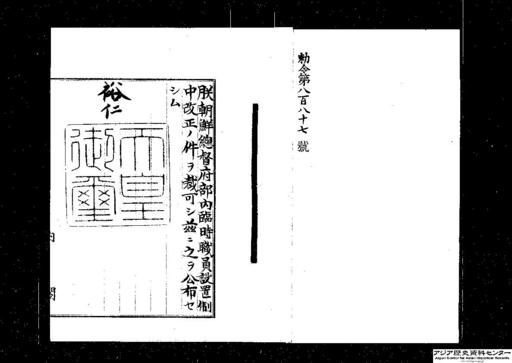 勅令第八百八十七號
朕朝鮮總督府部內臨時職員設置制
中改正ノ件ヲ裁可シ茲ニ之ヲ公布セ
シム
裕仁
天皇御璽
內閣
アジア歴史資料センター
Japan Center for Asian Historical Records